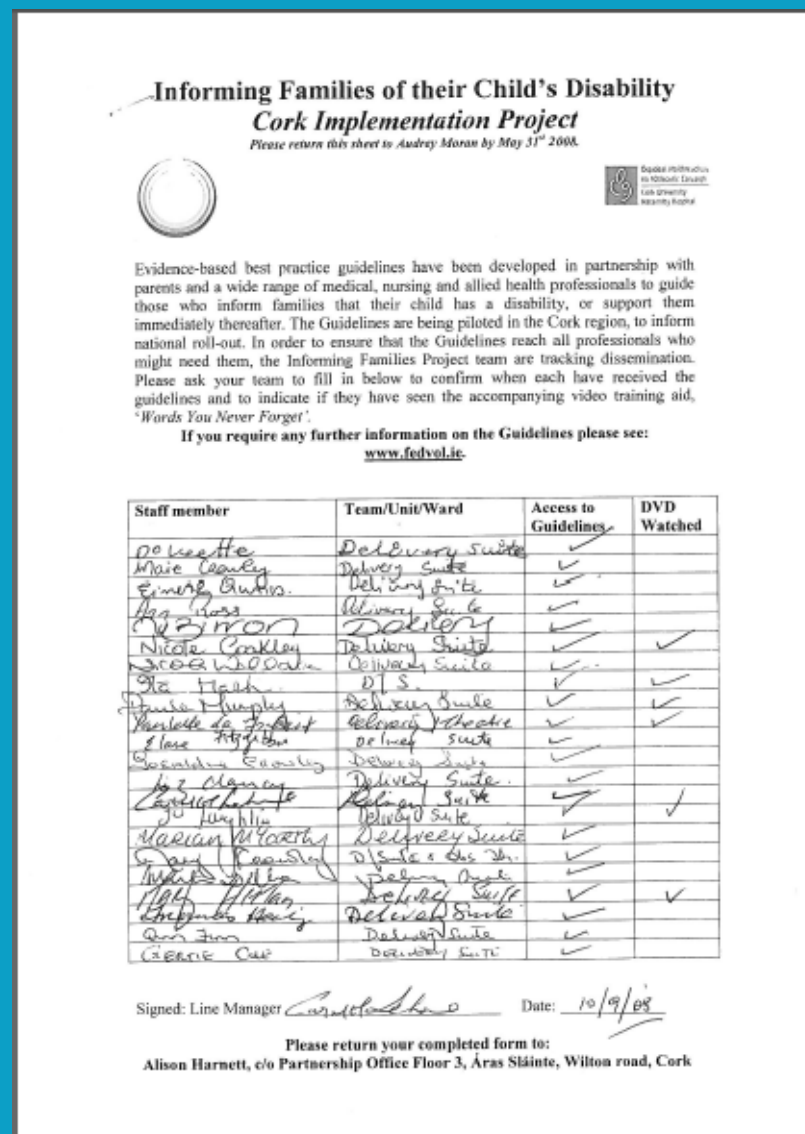 Informing Families of their Child's Disability
Cork Implementation Project
Please return this sheet to Audrey Moran by May 31st 2008.
Cork University
Maternity Hospital
Evidence-based best practice guidelines have been developed in partnership with
parents and a wide range of medical, nursing and allied health professionals to guide
those who inform families that their child has a disability, or support them
immediately thereafter. The Guidelines are being piloted in the Cork region, to inform
national roll-out. In order to ensure that the Guidelines reach all professionals who
might need them, the Informing Families Project team are tracking dissemination.
Please ask your team to fill in below to confirm when each have received the
guidelines and to indicate if they have seen the accompanying video training aid,
'Words You Never Forget'.
If you require any further information on the Guidelines please see:
www.fedvol.ie.
Staff member Team/Unit/Ward Access to Guidelines DVD Watched
Delivery Suite ✓
Delivery Suite ✓
Delivery Suite ✓
Ann Ross Delivery Suite ✓
Delivery ✓
Nicole Coakley Delivery Suite ✓ ✓
Delivery Suite ✓
D/S. ✓ ✓
Paula Murphy Delivery Suite ✓ ✓
Delivery Theatre ✓ ✓
Delivery Suite ✓
Geraldine Crowley Delivery Suite ✓
Liz Clancy Delivery Suite. ✓
Delivery Suite ✓
Delivery Suite ✓ ✓
Marian McCarthy Delivery Suite ✓
Mary Crowley D/Suite ✓
Delivery Suite ✓
Mary Delivery Suite ✓ ✓
Delivery Suite ✓
Ann Finn Delivery Suite ✓
Gertie Delivery Suite ✓
Signed: Line Manager Date: 10/9/08
Please return your completed form to:
Alison Harnett, c/o Partnership Office Floor 3, Áras Sláinte, Wilton road, Cork